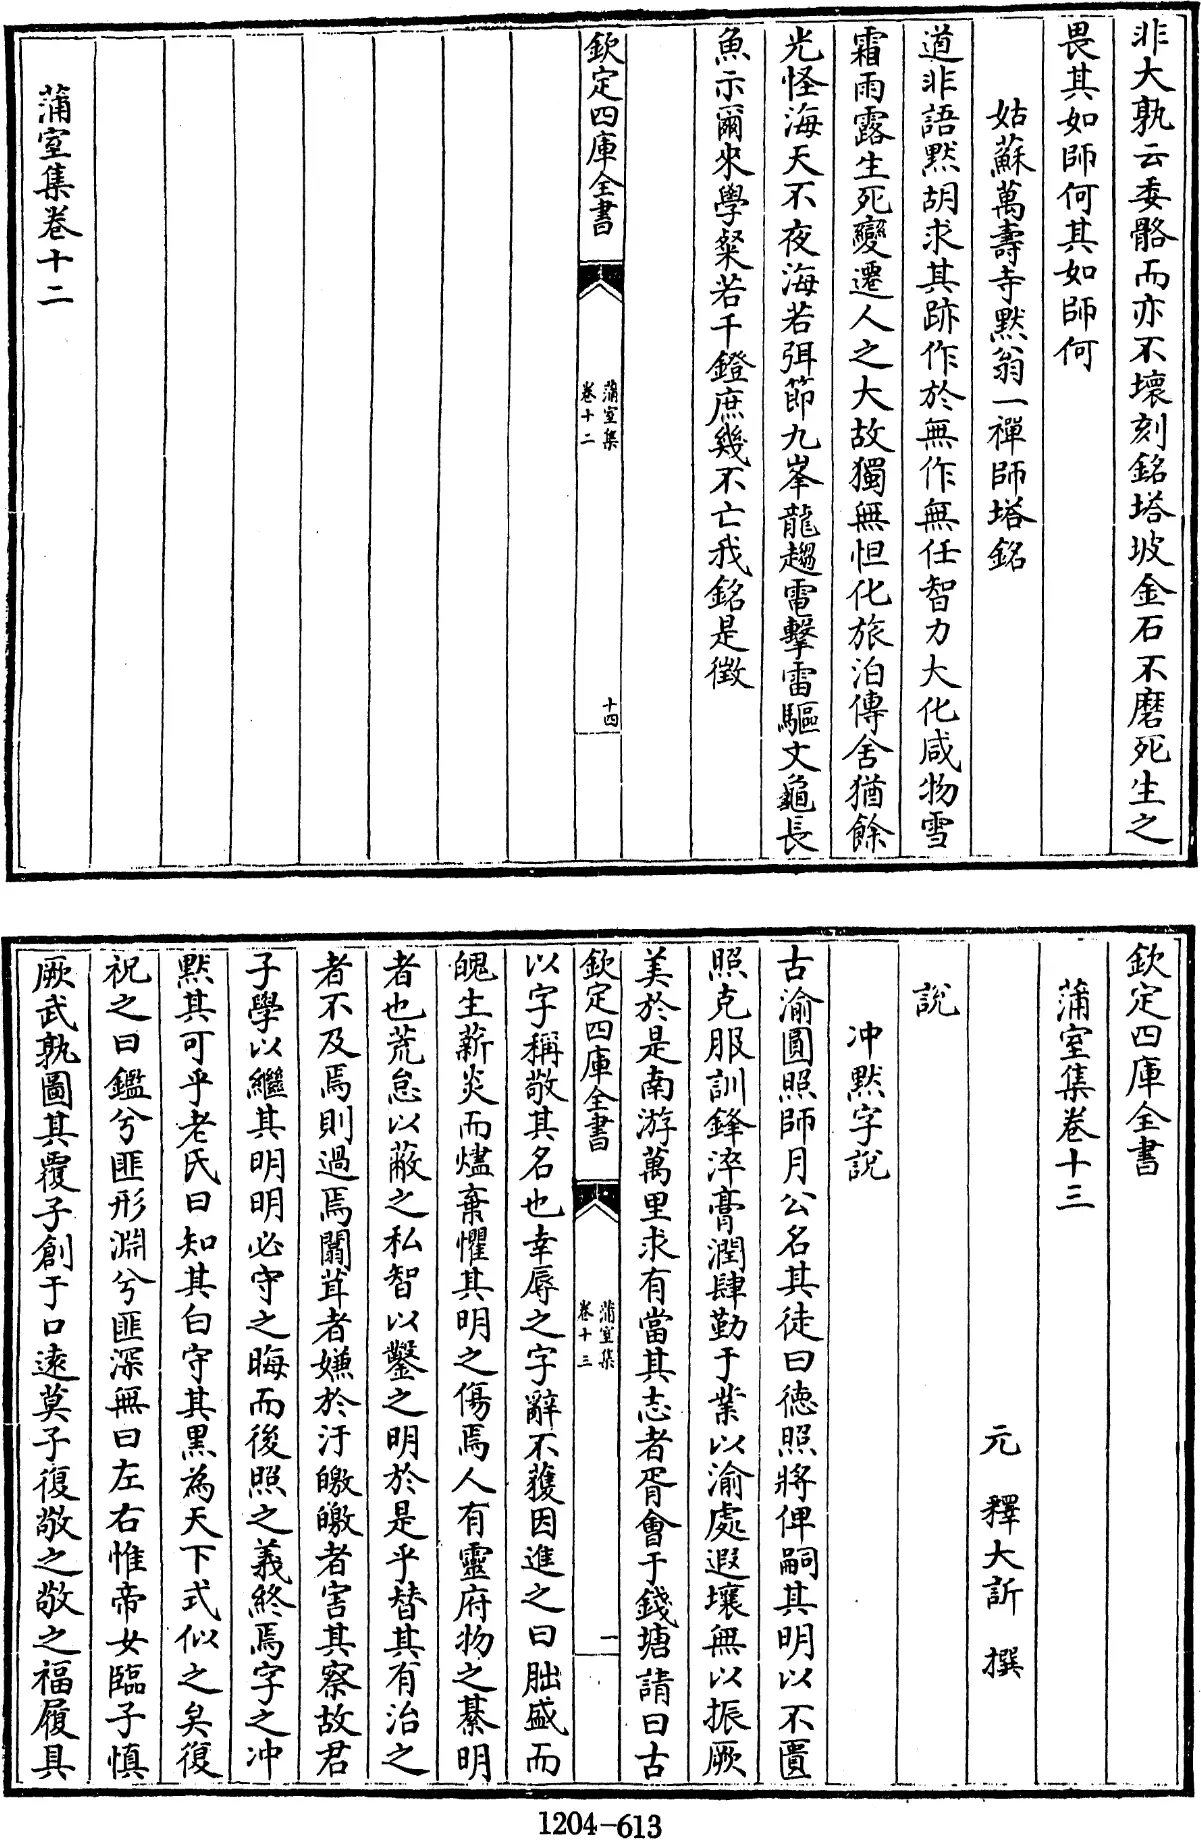 非大孰云委骼而亦不壞刻銘塔坡金石不磨死生之
畏其如師何其如師何
姑蘇萬壽寺默翁一禪師塔銘
道非語默胡求其跡作於無作無任智力大化咸物雪
霜雨露生死變遷人之大故獨無怛化旅泊傳舍猶餘
光怪海天不夜海若弭節九峯龍趨電擊雷驅文龜長
魚示爾來學粲若千鐙庶幾不亡我銘是徵
欽定四庫全書
蒲室集
卷十二
十四
蒲室集卷十二
欽定四庫全書
蒲室集卷十三
元 釋大訢 撰
說
冲默字說
古渝圓照師月公名其徒曰德照將俾嗣其明以不匱
照克服訓鋒淬膏潤肆勤于業以渝處遐壤無以振厥
美於是南游萬里求有當其志者胥會于錢塘請曰古
欽定四庫全書
蒲室集
卷十三
一
以字稱敬其名也幸辱之字辭不蒦因進之曰朏盛而
魄生薪炎而燼棄懼其明之傷焉人有靈府物之綦明
者也荒怠以蔽之私智以鑿之明於是乎替其有治之
者不及焉則過焉闒茸者嫌於汙皦皦者害其察故君
子學以繼其明明必守之晦而後照之義終焉字之冲
默其可乎老氏曰知其白守其黒為天下式似之矣復
祝之曰鑑兮匪形淵兮匪深無曰左右惟帝女臨子慎
厥武孰圖其覆子創于口逺莫子復敬之敬之福履具
1204-613